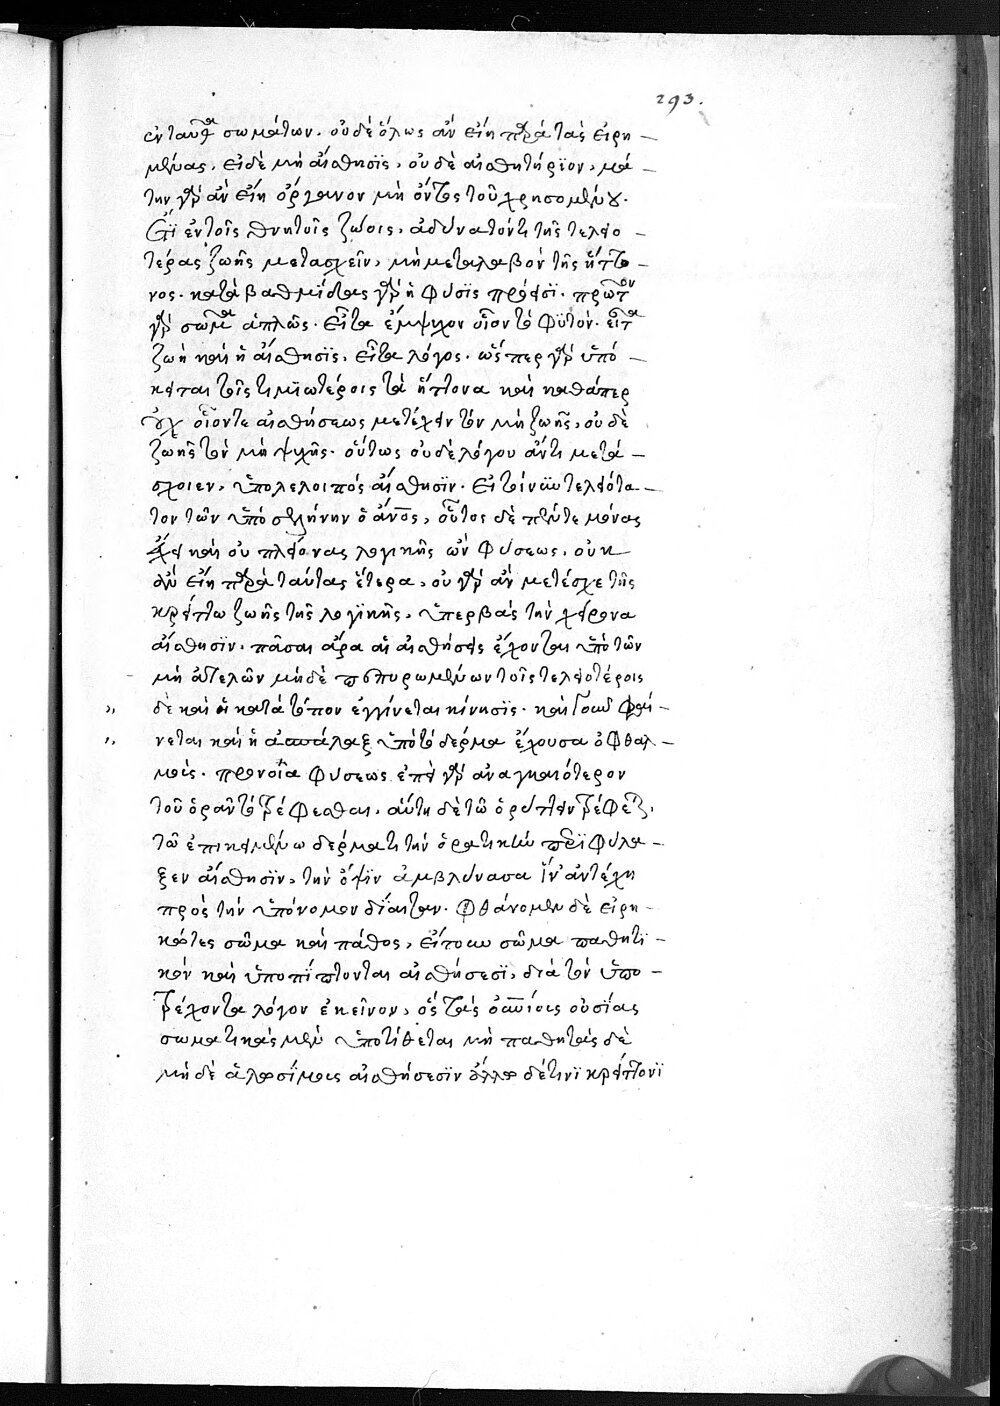 293.
ἐνταῦθα σωμάτων. οὐδὲ ὅλως ἂν εἴη παρὰ τὰς εἰρη-
μένας. εἰ δὲ μὴ αἴσθησϊς, οὐδὲ αἰσθητήρϊον, μά-
την γὰρ ἂν εἴη ὄργανον μὴ ὄντος τοῦ χρησομένου.
ἔτϊ ἐν τοῖς θνητοῖς ζώοις, ἀδύνατόν τι τῆς τελειο-
τέρας ζωῆς μετασχεῖν, μὴ μεταλαβὸν τῆς ἥττο-
νος. κατὰ βαθμΐδας γὰρ ἡ φύσϊς πρόεισϊ. πρῶτον
γὰρ σῶμα ἁπλῶς. εἶτα ἔμψυχον οἷον τὸ φϋτόν. εἶτα
ζωὴ καὶ ἡ αἴσθησϊς, εἶτα λόγος. ὥσπερ γὰρ ὑπό-
κειται τοῖς τιμϊωτέροις τὰ ἥττονα καὶ καθάπερ
οὐχ οἷόντε αἰσθήσεως μετέχειν τὸν μὴ ζωῆς, οὐδὲ
ζωῆς τὸν μὴ ψυχῆς. οὕτως οὐδὲ λόγου ἄν τι μετά-
σχοιεν, ὑπολελοιπὸς αἴσθησϊν. εἰ τοίνυν τελειότα-
τον τῶν ὑπὸ σελήνην ὁ ἄνος, οὗτος δὲ πέντε μόνας
ἔχει καὶ οὐ πλείονας λογικῆς ὢν φύσεως, οὐκ
ἂν εἴη παρὰ ταύτας ἕτερα, οὐ γὰρ ἂν μετέσχε τῆς
κρείττω ζωῆς τῆς λογϊκῆς, ὑπερβὰς τὴν χείρονα
αἴσθησϊν. πᾶσαι ἄρα αἱ αἰσθήσεις ἔχονται ὑπὸ τῶν
μὴ ἀτελῶν μηδὲ πεπηρωμένων τοῖς τελειοτέροις
δὲ καὶ ἡ κατὰ τόπον ἐγγίνεται κίνησϊς. καὶ γοῦν φαί-
νεται καὶ ἡ ἀσπάλαξ ὑπὸ τὸ δέρμα ἔχουσα ὀφθαλ-
μούς. προνοία φύσεως ἐπεὶ γὰρ ἀναγκαιότερον
τοῦ ὁρᾶν τὸ τρέφεσθαι. αὕτη δὲ τῶ ὀρύττειν τρέφεται.
τῶ ἐπικειμένω δέρματι τὴν ὁρατικὴν περϊφύλα-
ξεν αἴσθησϊν, τὴν ὄψϊν ἀμβλύνασα ἵν' ἀντέχη
πρὸς τὴν ὑπόνομον δΐαιταν. φθάνομεν δὲ εἰρη-
κότες σῶμα καὶ πάθος, εἴπου σῶμα παθητϊ-
κὸν καὶ ὑποπΐπτονται αἰσθήσεσϊ, διὰ τὸν ὑπο-
τρέχοντα λόγον ἐκεῖνον, ὃς τὰς οὐνίοις οὐσίας
σωματικὰς μὲν ὑποτίθεται μὴ παθητὰς δὲ
μηδὲ ἁλωσΐμοις αἰσθήσεσϊν ἄλλο δέ τινϊ κρείττονϊ